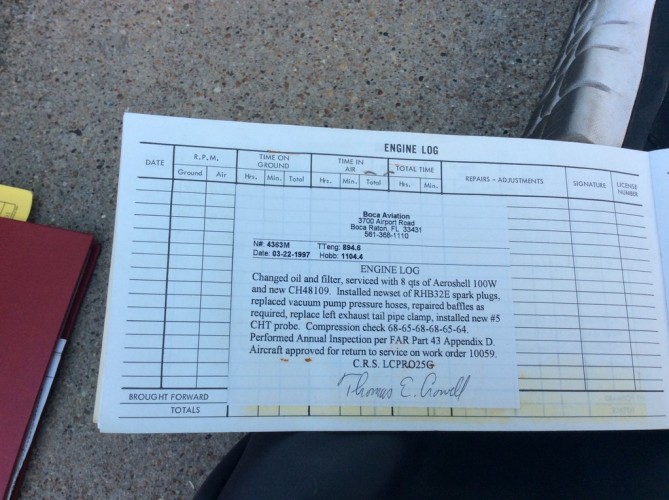 ENGINE LOG
DATE R.P.M. TIME ON GROUND TIME IN AIR TOTAL TIME REPAIRS - ADJUSTMENTS SIGNATURE LICENSE NUMBER
Ground Air Hrs. Min. Total Hrs. Min. Total Hrs. Min.
Boca Aviation
3700 Airport Road
Boca Raton, FL 33431
561-368-1110
N#: 4363M TTeng: 894.6
Date: 03-22-1997 Hobb: 1104.4
ENGINE LOG
Changed oil and filter, serviced with 8 qts of Aeroshell 100W
and new CH48109. Installed newset of RHB32E spark plugs,
replaced vacuum pump pressure hoses, repaired baffles as
required, replace left exhaust tail pipe clamp, installed new #5
CHT probe. Compression check 68-65-68-68-65-64.
Performed Annual Inspection per FAR Part 43 Appendix D.
Aircraft approved for return to service on work order 10059.
C.R.S. LCPRO25G
Thomas E. Crowell
BROUGHT FORWARD
TOTALS